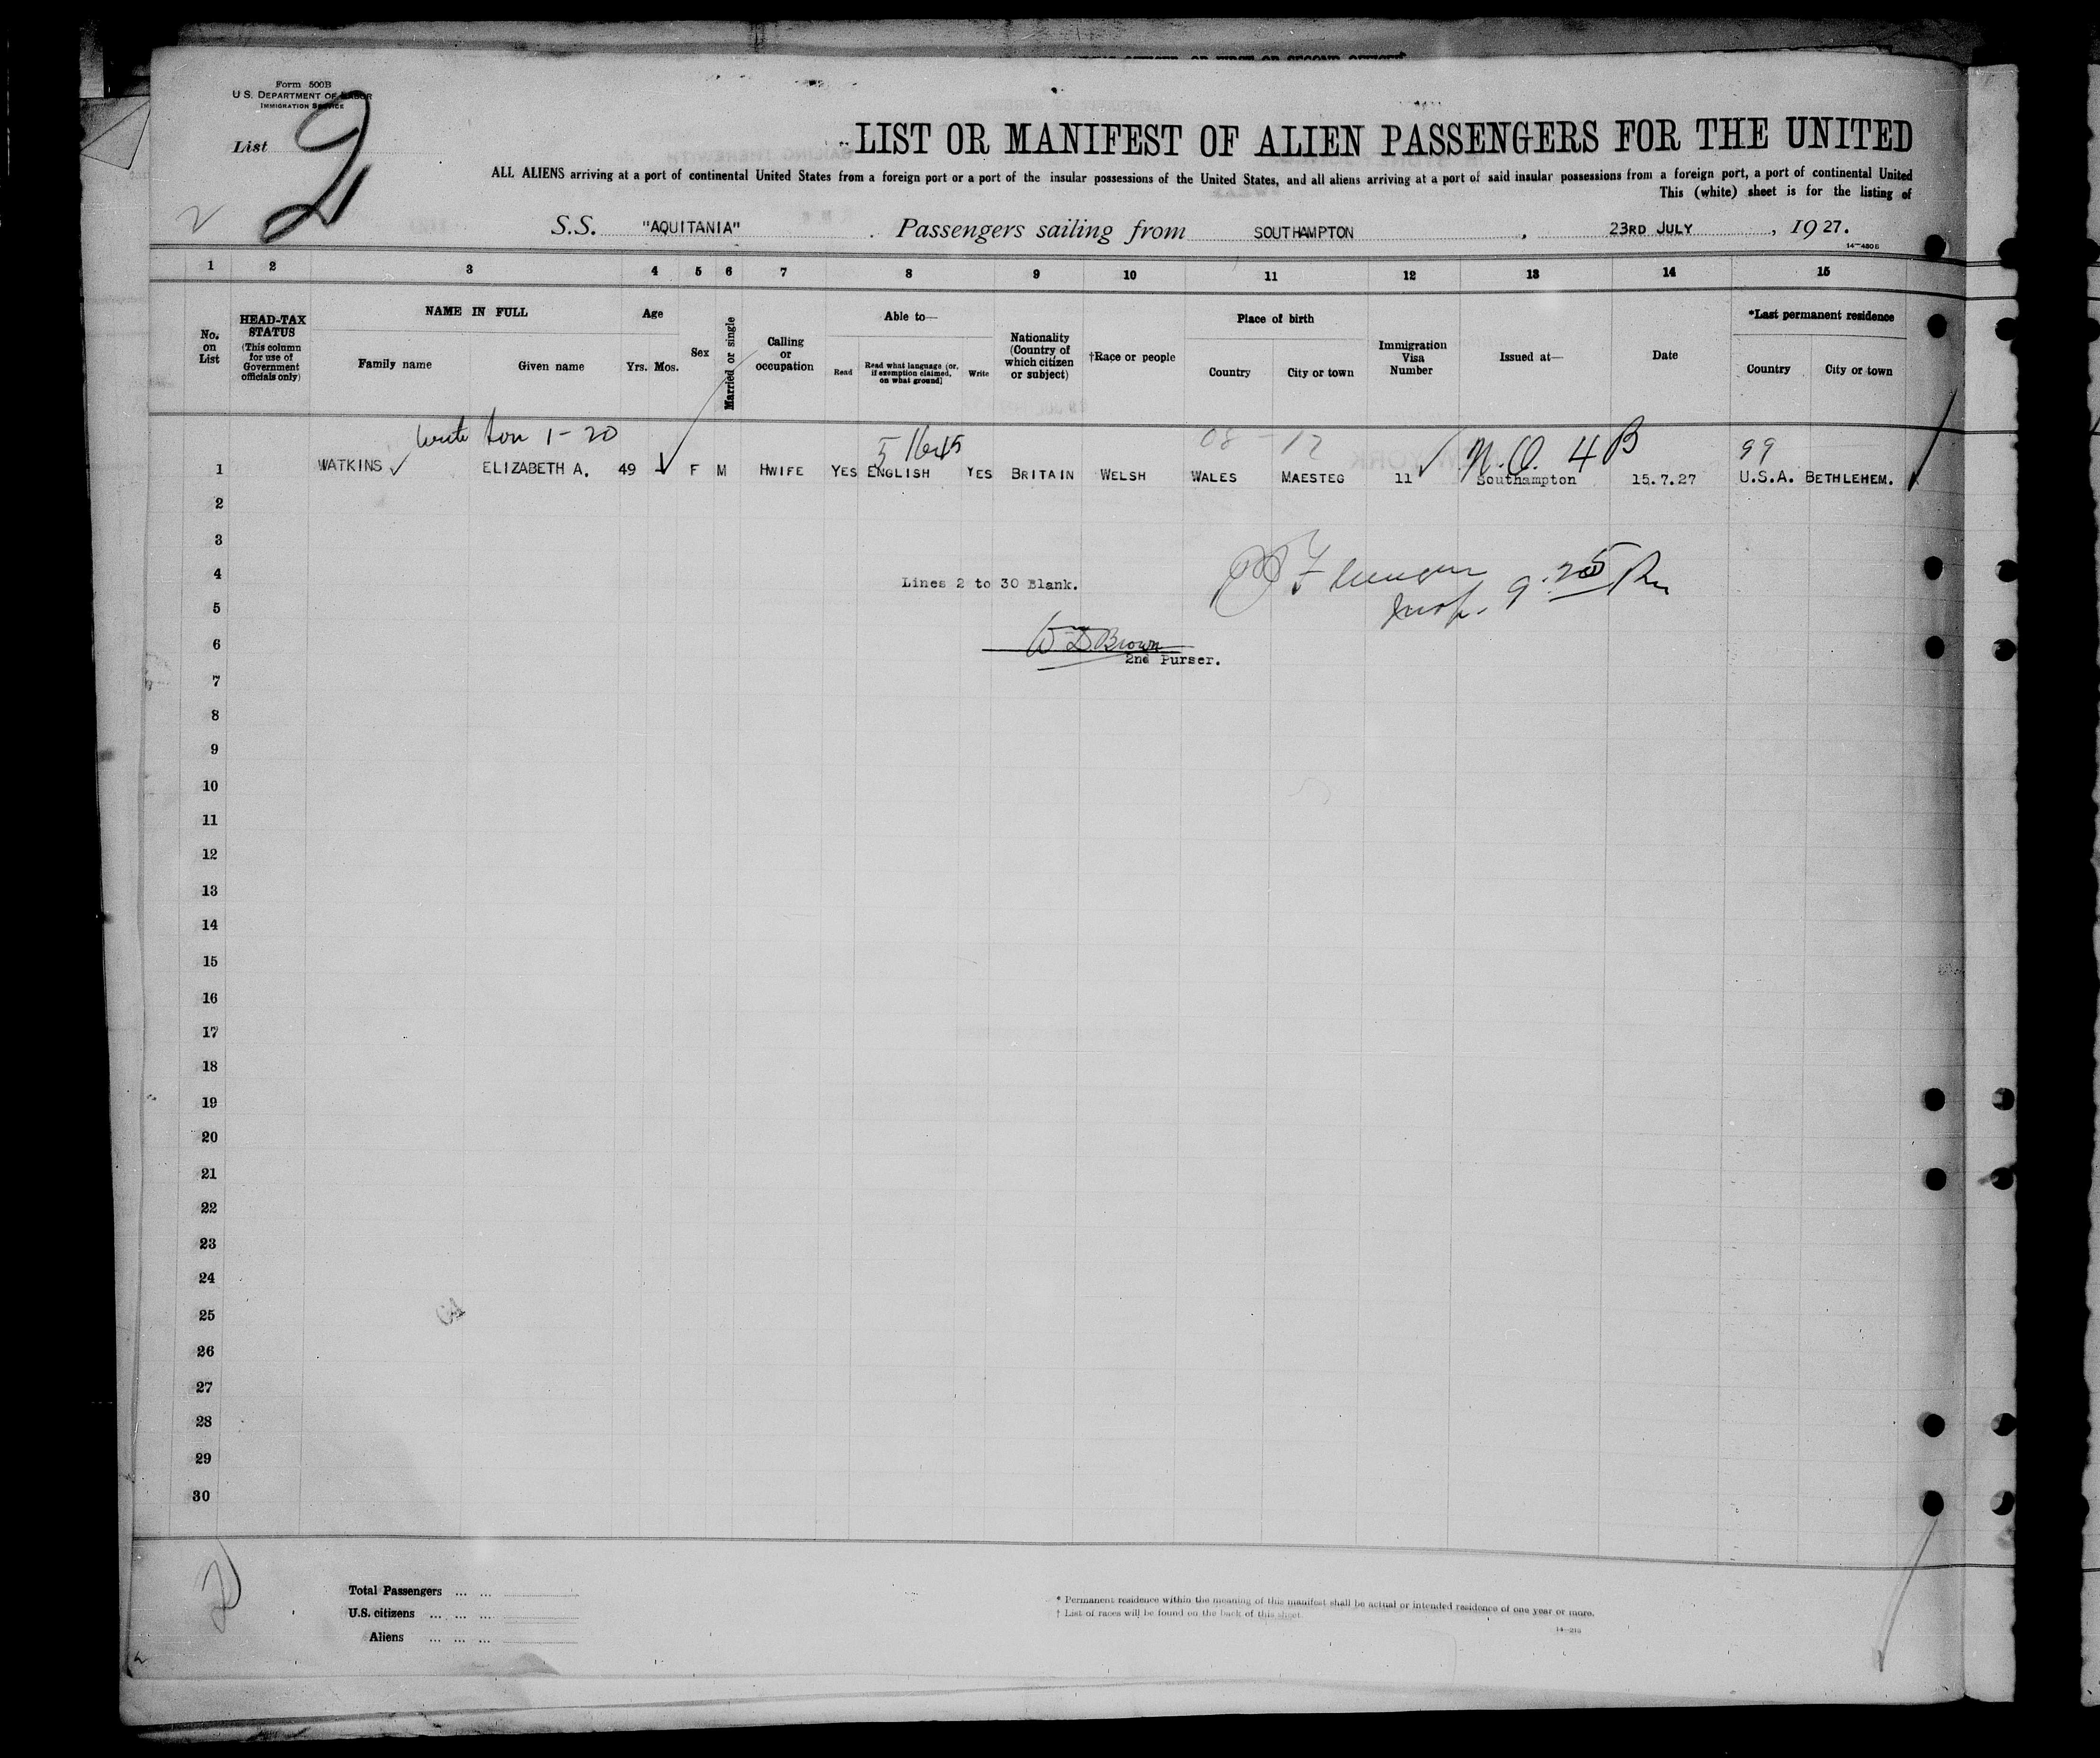 Form 500B
U.S. DEPARTMENT OF LABOR
IMMIGRATION SERVICE
List 2
LIST OR MANIFEST OF ALIEN PASSENGERS FOR THE UNITED
ALL ALIENS arriving at a port of continental United States from a foreign port or a port of the insular possessions of the United States, and all aliens arriving at a port of said insular possessions from a foreign port, a port of continental United
This (white) sheet is for the listing of
2
S.S. "AQUITANIA" . Passengers sailing from SOUTHAMPTON , 23RD JULY , 1927.
1 2 3 4 5 6 7 8 9 10 11 12 13 14 15
No. on List
HEAD-TAX STATUS (This column for use of Government officials only)
NAME IN FULL
Family name Given name
Age
Yrs. Mos.
Sex
Married or single
Calling or occupation
Able to—
Read Read what language (or, if exemption claimed, on what ground) Write
Nationality (Country of which citizen or subject)
†Race or people
Place of birth
Country City or town
Immigration Visa Number
Issued at—
Date
*Last permanent residence
Country City or town
1-20 08-12 N.Q. 4B 99
1 WATKINS ✓ ELIZABETH A. 49 F M HWIFE YES ENGLISH YES BRITAIN WELSH WALES MAESTEG 11 ✓ Southampton 15.7.27 U.S.A. BETHLEHEM.
2
3
4 Lines 2 to 30 Blank.
Insp. 9.25
5
6 Wm D Brown
2nd Purser.
7
8
9
10
11
12
13
14
15
16
17
18
19
20
21
22
23
24
25
26
27
28
29
30
2
Total Passengers ... ...
U.S. citizens ... ... ...
Aliens ... ... ...
* Permanent residence within the meaning of this manifest shall be actual or intended residence of one year or more.
† List of races will be found on the back of this sheet.